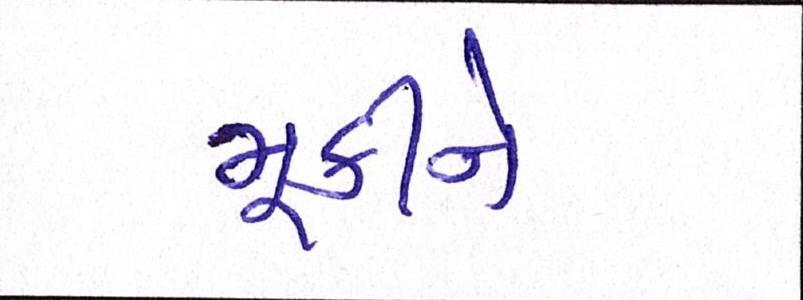 મૂકીને